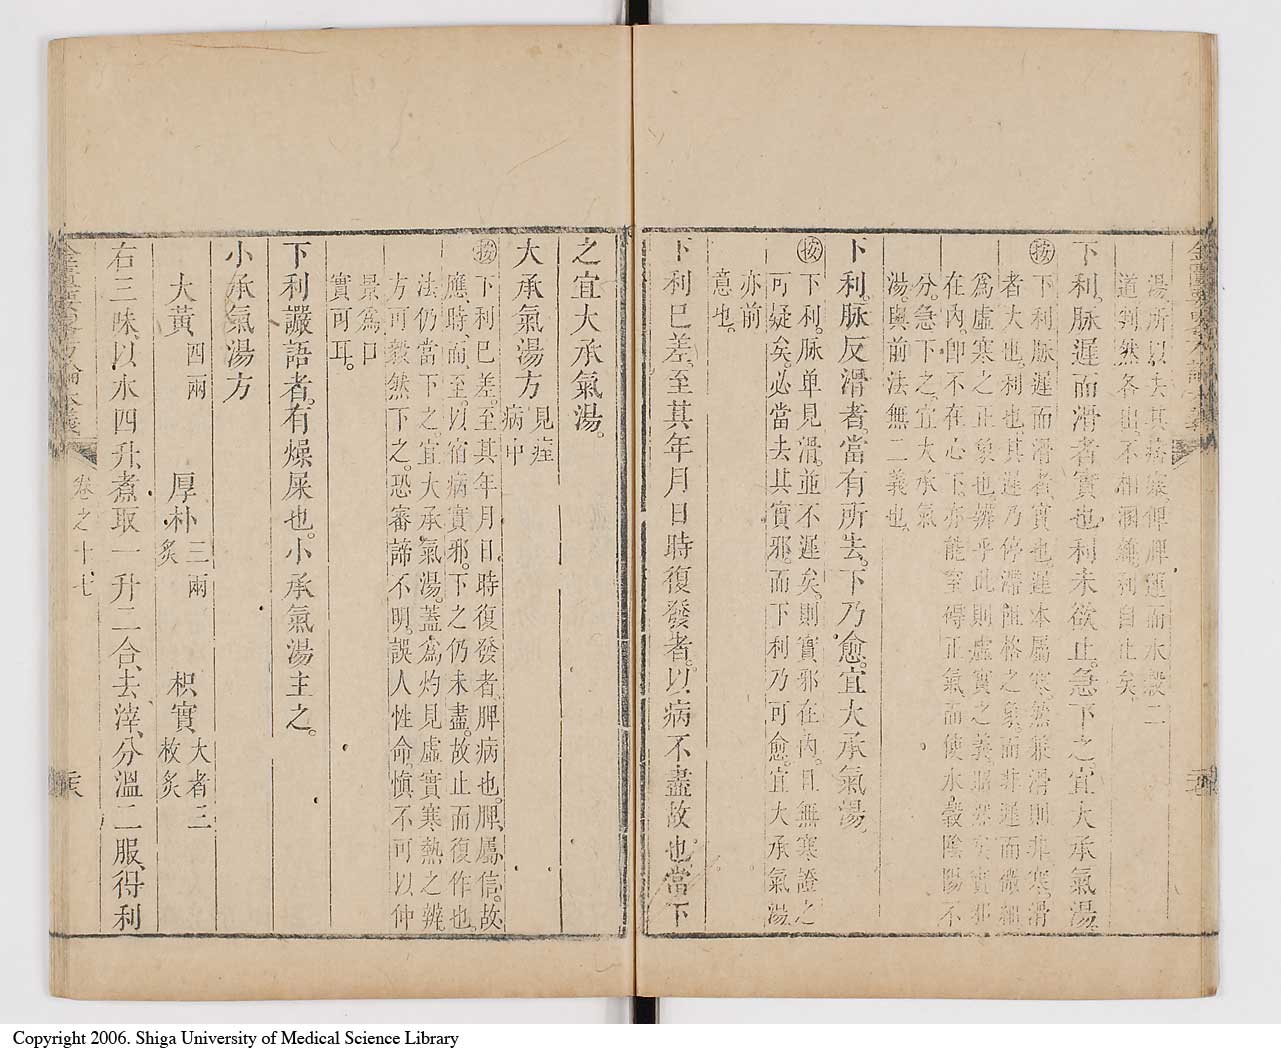 湯所以去其蒔寒俾脾運而水穀二
道判然各出不相溷雜利自止矣
下利。脈遲而滑者實也利未欲止。急下之。宜大承氣湯。
㊜下利脈遲而滑者實也遲本屬寒然兼滑則非寒滑
者大也利也其遲乃停滯阻格之象而非遲而微細
爲虛寒之正象也辨乎此則虛實之義昭然矣實邪
在內卽不在心下亦能窒碍正氣而使水穀陰陽不
分。急下之。宜大承氣
湯。與前法無二義也。
下利。脈反滑者。當有所去。下乃愈。宜大承氣湯。
㊜下利。脈单見滑。並不遲矣。則實邪在內。且無寒證之
可疑矣。必當去其實邪。而下利乃可愈。宜大承氣湯。
亦前
意也。
下利已差。至其年月日時復發者。以病不盡故也。當下
之宜大承氣湯。
大承氣湯方 見痓
病中
㊜下利已差。至其年月日。時復發者。脾病也。脾屬信。故
應時。而至。以宿病實邪。下之仍未盡。故止而復作也。
法仍當下之。宜大承氣湯。蓋爲灼見虛實寒熱之辨。
方可毅然下之。恐審諦不明。誤人性命。愼不可以仲
景爲口
實可耳。
下利讝語者。有燥屎也。小承氣湯主之。
小承氣湯方
大黃 四兩 厚朴 三兩
炙 枳實 大者三
枚炙
右三味。以水四升。煮取一升二合。去滓。分溫二服。得利
卷之十七